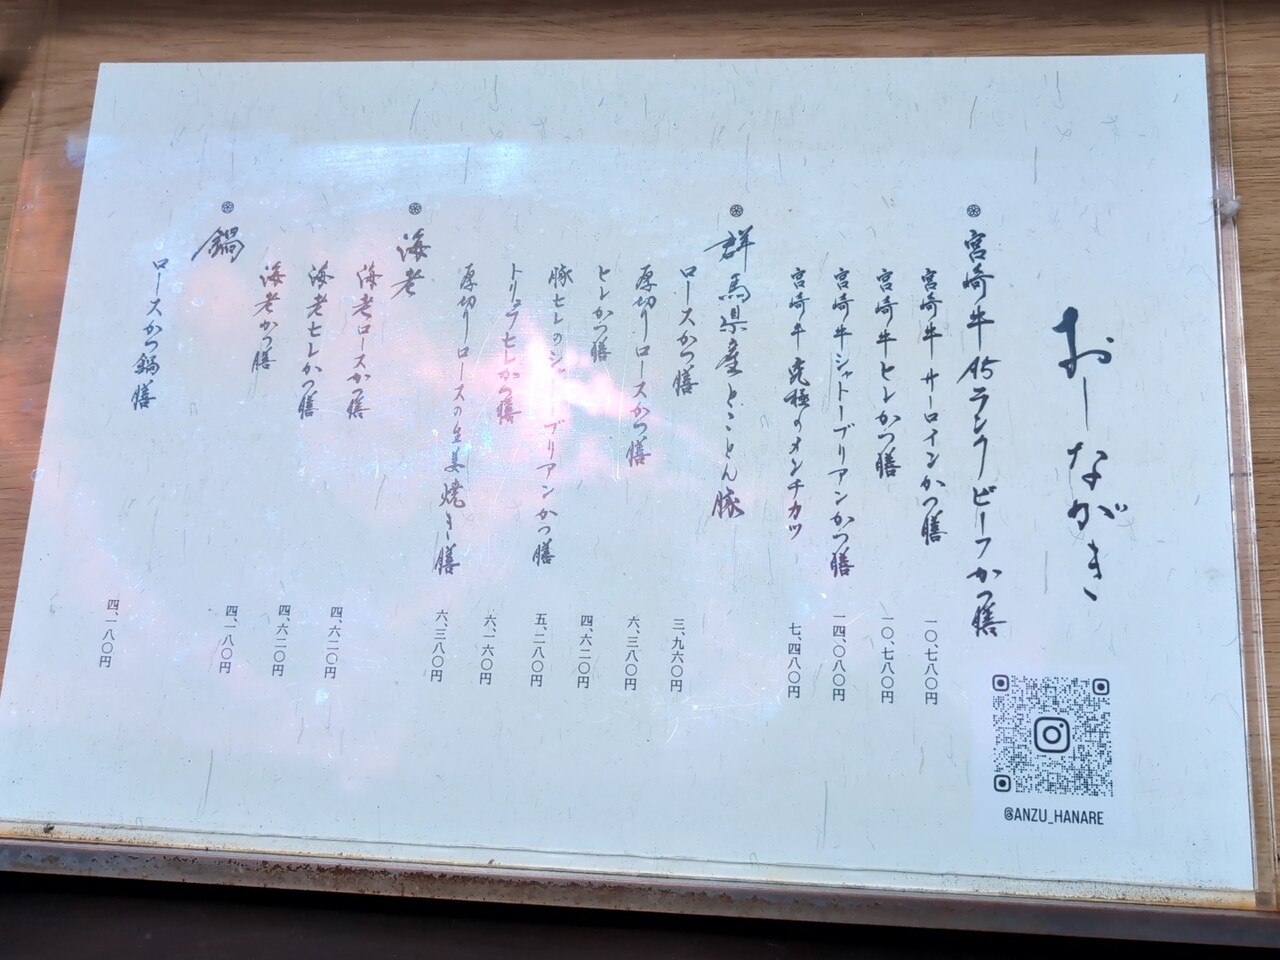 おしながき
宮崎牛A5ランクビーフかつ膳
宮崎牛サーロインかつ膳 一〇、七八〇円
宮崎牛ヒレかつ膳 一〇、七八〇円
宮崎牛シャトーブリアンかつ膳 一四、〇八〇円
宮崎牛究極のメンチカツ 七、四八〇円
群馬県産とことん豚
ロースかつ膳 三、九六〇円
厚切りロースかつ膳 六、三八〇円
ヒレかつ膳 四、六二〇円
豚ヒレのシャトーブリアンかつ膳 五、二八〇円
トリュフヒレかつ膳 六、一六〇円
厚切りロースの生姜焼き膳 六、三八〇円
海老
海老ロースかつ膳 四、六二〇円
海老ヒレかつ膳 四、六二〇円
海老かつ膳 四、一八〇円
鍋
ロースかつ鍋膳 四、一八〇円
@ANZU_HANARE